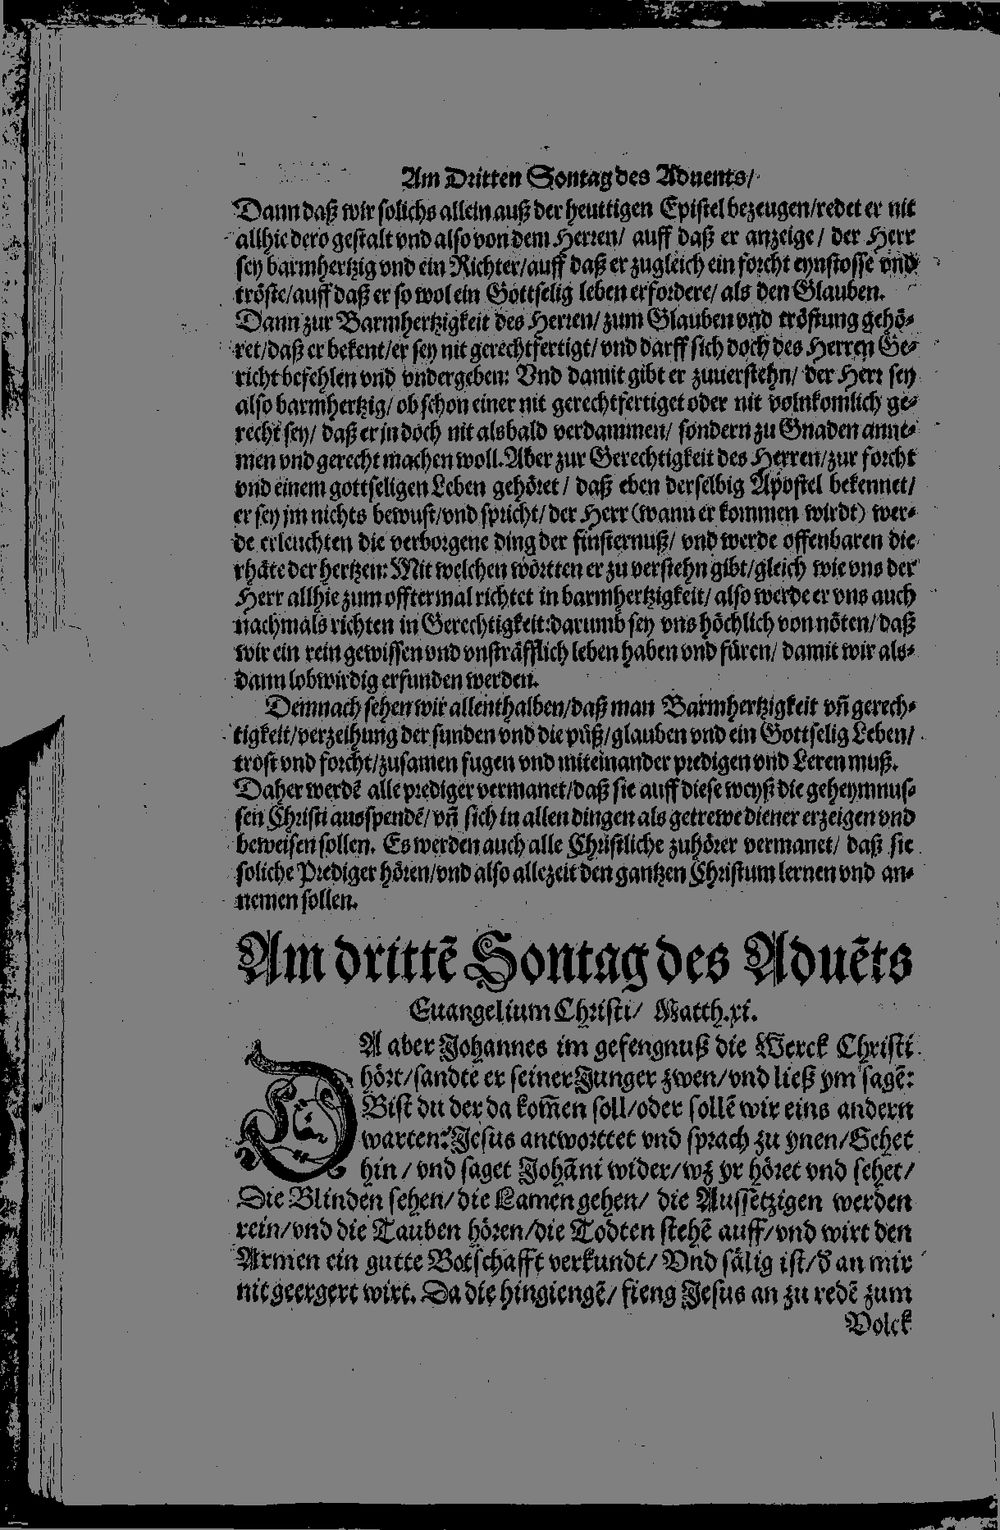 Am Dritten Sontag des Aduents/
Dann daß wir solichs allein auß der heuttigen Epistel bezeugen/redet er nit
allhie dero gestalt vnd also von dem Herren/ auff daß er anzeige/ der Herr
sey barmhertzig vnd ein Richter/auff daß er zugleich ein forcht eynstosse vnd
tröste/auff daß er so wol ein Gottselig leben erfordere/ als den Glauben.
Dann zur Barmhertzigkeit des Herren/ zum Glauben vnd tröstung gehö-
ret/daß er bekent/er sey nit gerechtfertigt/ vnd darff sich doch des Herren Ge-
richt befehlen vnd vndergeben: Vnd damit gibt er zuuerstehn/ der Herr sey
also barmhertzig/ ob schon einer nit gerechtfertiget oder nit volnkomlich ge-
recht sey/ daß er jn doch nit alsbald verdammen/ sondern zu Gnaden anne-
men vnd gerecht machen woll. Aber zur Gerechtigkeit des Herren/zur forcht
vnd einem gottseligen Leben gehöret/ daß eben derselbig Apostel bekennet/
er sey jm nichts bewust/vnd spricht/ der Herr (wann er kommen wirdt) wer-
de erleuchten die verborgene ding der finsternuß/ vnd werde offenbaren die
rhäte der hertzen: Mit welchen wörtten er zu verstehn gibt/gleich wie vns der
Herr allhie zum offtermal richtet in barmhertzigkeit/ also werde er vns auch
nachmals richten in Gerechtigkeit: darumb sey vns höchlich von nöten/ daß
wir ein rein gewissen vnd vnsträfflich leben haben vnd füren/ damit wir als-
dann lobwirdig erfunden werden.
Demnach sehen wir allenthalben/daß man Barmhertzigkeit vñ gerech-
tigkeit/verzeihung der sunden vnd die půß/glauben vnd ein Gottselig Leben/
trost vnd forcht/zusamen fugen vnd miteinander predigen vnd Leren muß.
Daher werdē alle prediger vermanet/daß sie auff diese weyß die geheymnus-
sen Christi ausspendē/ vñ sich in allen dingen als getrewe diener erzeigen vnd
beweisen sollen. Es werden auch alle Christliche zuhörer vermanet/ daß sie
soliche Prediger hören/vnd also allezeit den gantzen Christum lernen vnd an-
nemen sollen.
Am drittē Sontag des Aduēts
Euangelium Christi/ Matth.xi.
DA aber Johannes im gefengnuß die Werck Christi
hört/sandte er seiner Junger zwen/vnd ließ ym sagē:
Bist du der da kom̄en soll/oder sollē wir eins andern
warten? Jesus antworttet vnd sprach zu ynen/Gehet
hin/ vnd saget Johāni wider/wz yr höret vnd sehet/
Die Blinden sehen/ die Lamen gehen/ die Aussetzigen werden
rein/vnd die Tauben hören/die Todten stehē auff/vnd wirt den
Armen ein gutte Botschafft verkundt/ Vnd sälig ist/đ an mir
nit geergert wirt. Da die hingiengē/ fieng Jesus an zu redē zum
Volck